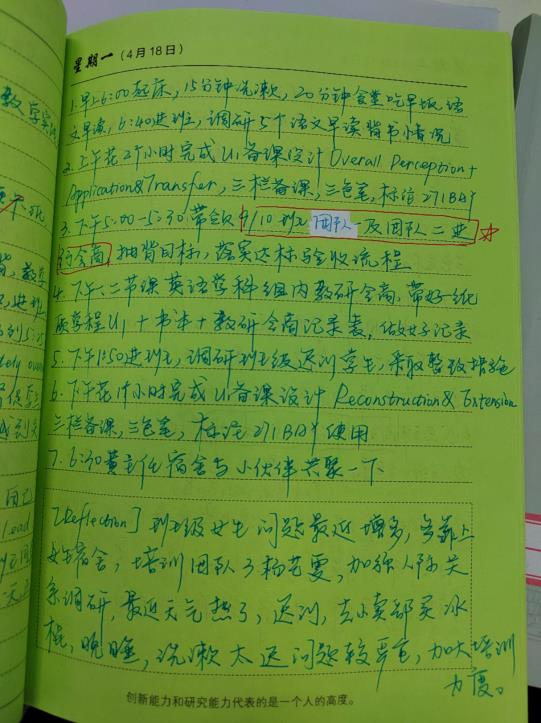 星期一(4月18日)
1.早上6:00起床,15分钟洗漱,20分钟食堂吃早饭,语
文早读,6:40进班,调研5个语文早读背书小情况
2.上午花2个小时完成U1备课设计Overall Perception+
Application&Transfer,三栏备课,三色笔,标注271BAY
3.下午5:00-5:30带领9/10班团队一及团队二进
行会商,抽背目标,落实达标与验收流程
4.下午一二节课英语学科组内教研会商,带好纸
质学程U1+书本+教研会商记录表,做好记录
5.下午1:50进班,调研班级迟到学生,采取整改措施
6.下午花1个小时完成U1备课设计Reconstruction&Extension
三栏备课,三色笔,标注271BAY使用
7.6:30黄主任宿舍与小伙伴共聚一下
[Reflection]班级女生问题最近增多,多靠上
女生宿舍,培训团队3杨艺夏,加强人际关
系调研,最近天气热了,迟到,去小卖部买冰
棍,晚睡,洗漱太迟问题较严重,加大培训
力度。
创新能力和研究能力代表的是一个人的高度。